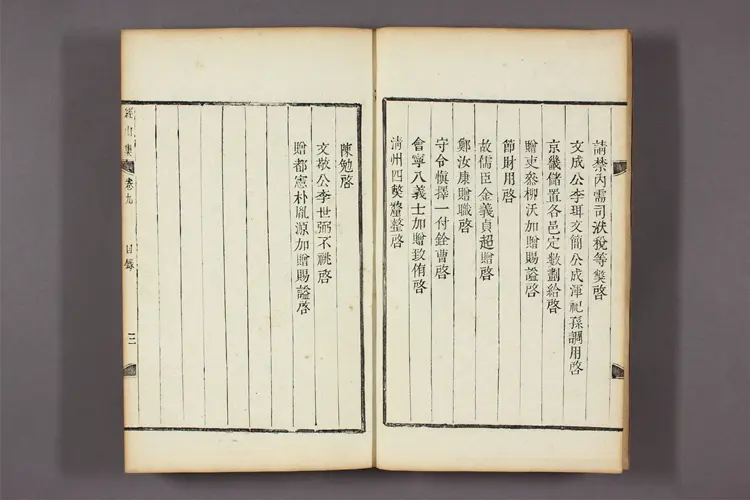 請禁內需司洑稅等獘啓
文成公李珥文簡公成渾祀孫調用啓
京畿儲置各邑定數劃給啓
贈吏叅柳沃加贈賜謚啓
節財用啓
故儒臣金義貞超贈啓
鄭汝康贈職啓
守令愼擇一付銓曹啓
會寧八義士加贈致侑啓
淸州四獘釐整啓
陳勉啓
文敬公李世弼不祧啓
贈都憲朴胤源加贈賜謚啓
經山集 卷九 目錄 三